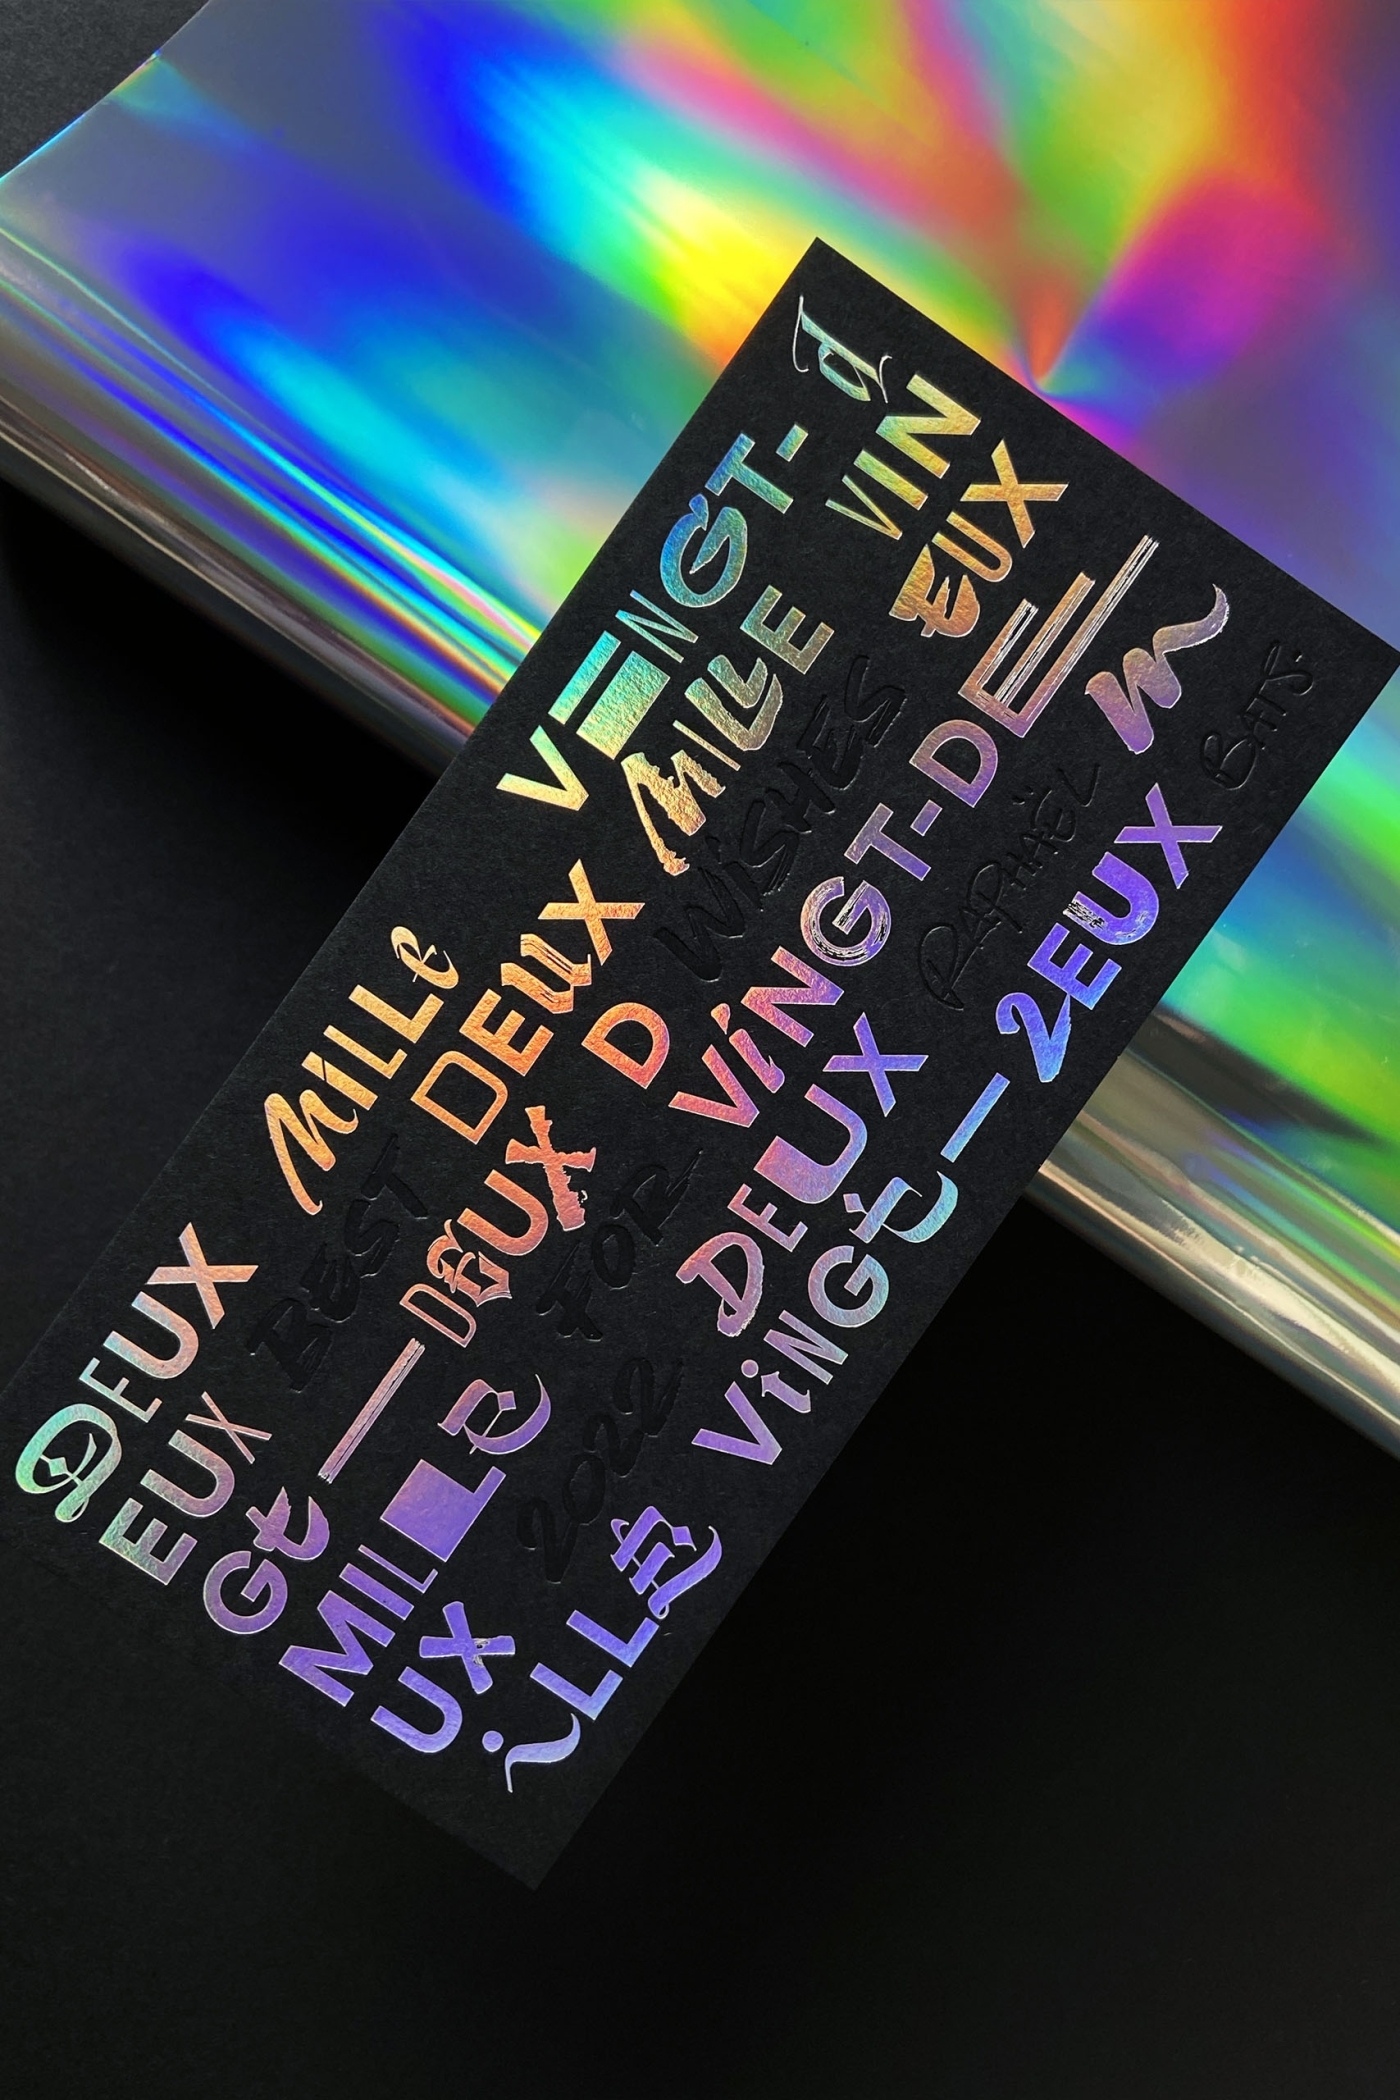 DEUX MILLe VINGT-d
EUX BEST DEUX MILLE VIN
Gt—DEUX D WISHES EUX
MILLe FOR ViNGT-DE
UX 2022 DEUX RAPHAËL m
iLLE ViNGt—2EUX BATS.